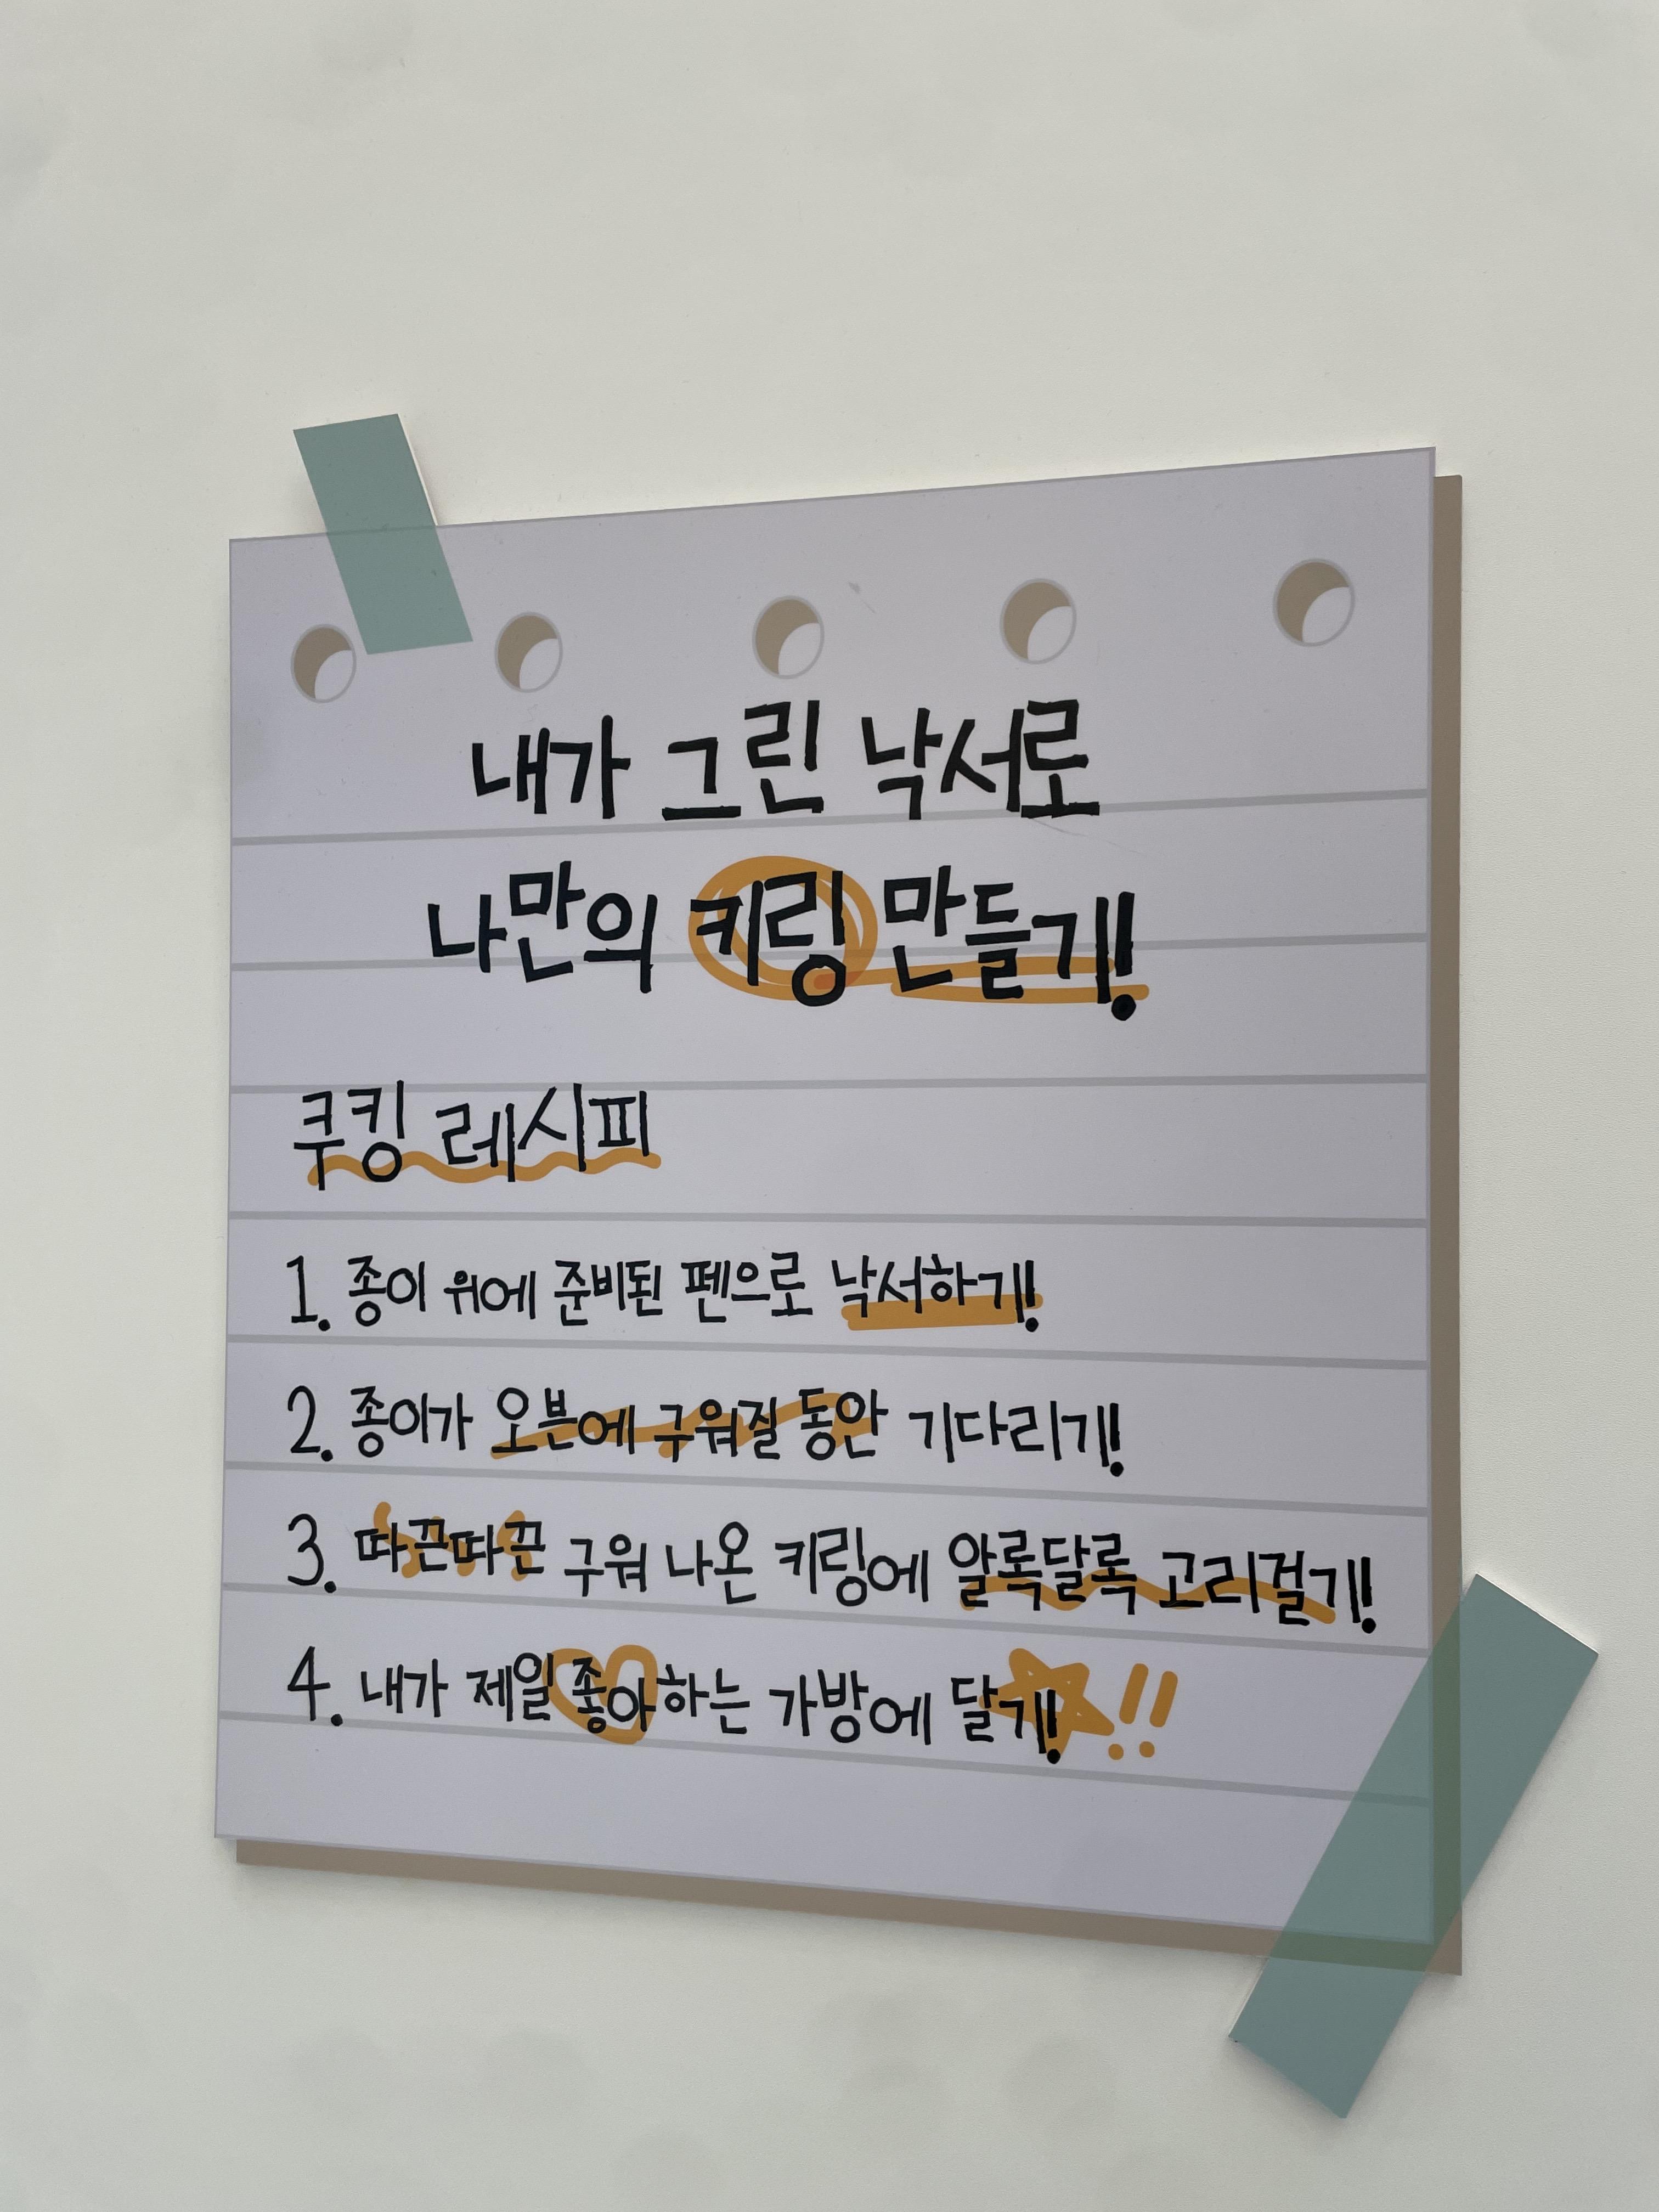 내가 그린 낙서로
나만의 키링 만들기!
쿠킹 레시피
1. 종이 위에 준비된 펜으로 낙서하기!
2. 종이가 오븐에 구워질 동안 기다리기!
3. 따끈따끈 구워 나온 키링에 알록달록 고리걸기!
4. 내가 제일 좋아하는 가방에 달기! !!